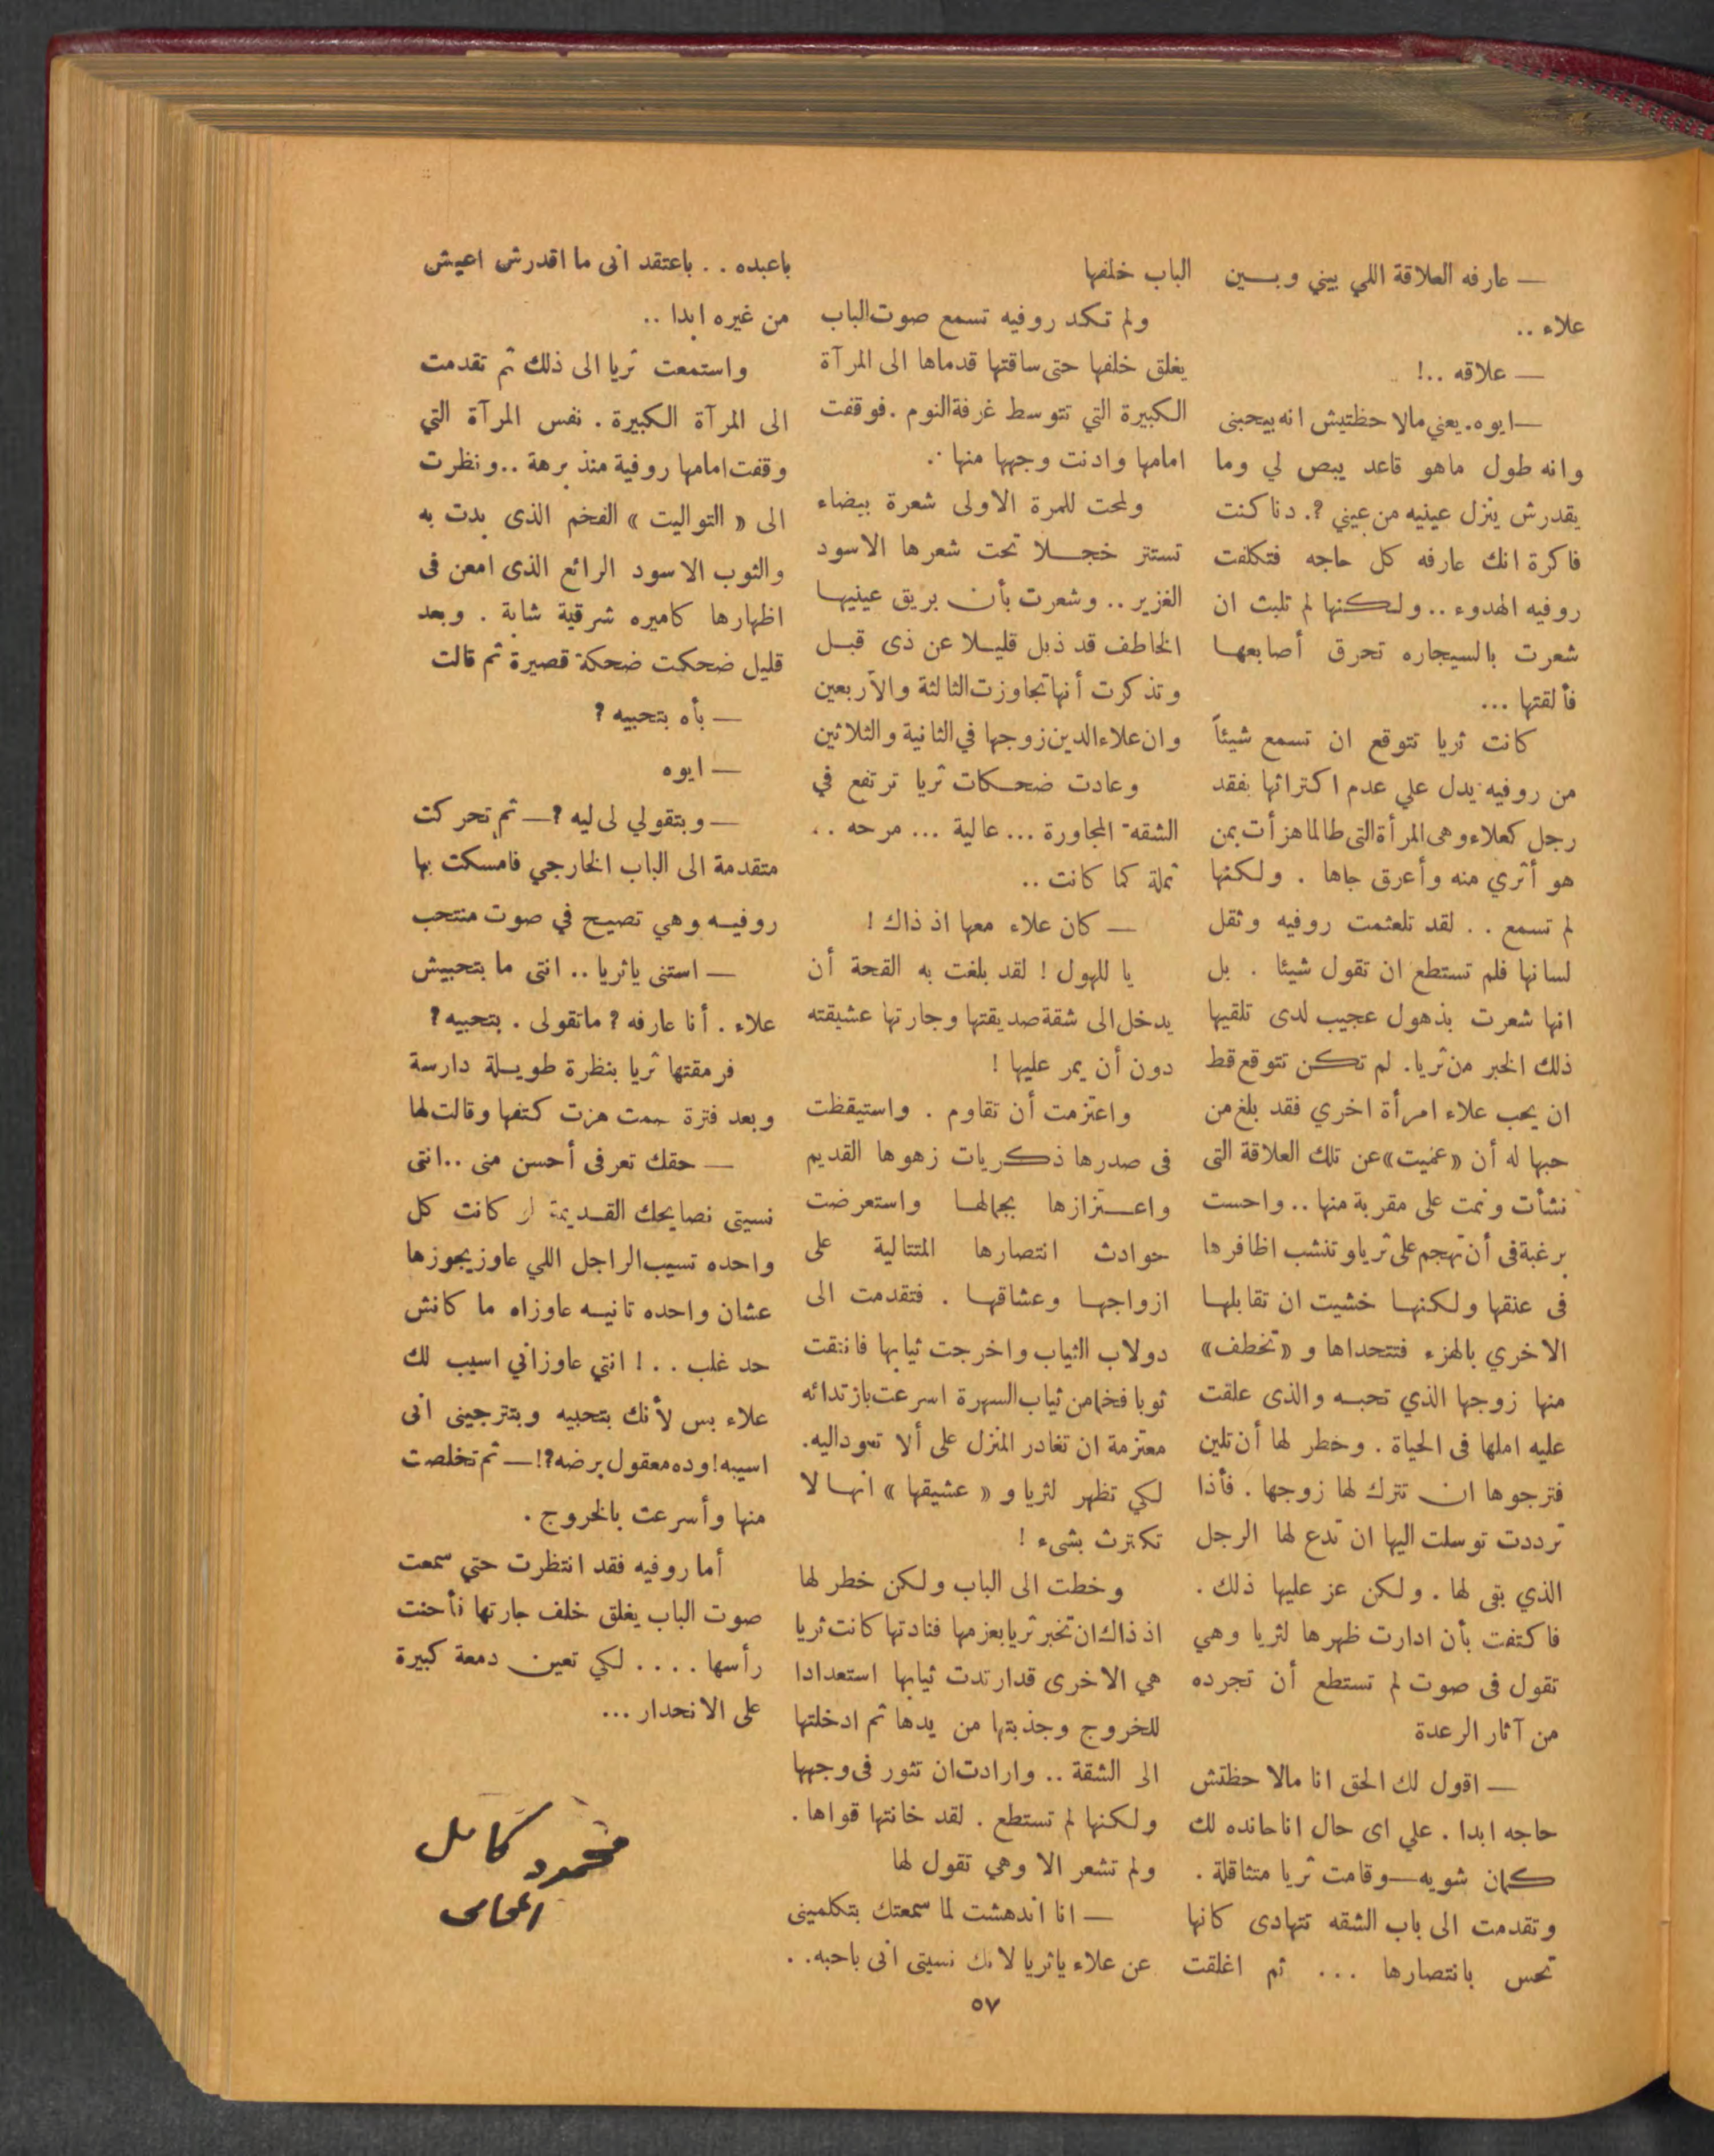 — عارفه العلاقة اللي بيني وبين
علاء ..
— علاقه ..!
— ايوه. يعني مالاحظتيش انه بيحبنى
وانه طول ماهو قاعد يبص لي وما
يقدرش ينزل عينيه من عيني ?. دنا كنت
فاكرة انك عارفه كل حاجه فتكلفت
روفيه الهدوء .. ولكنها لم تلبث ان
شعرت بالسيجاره تحرق أصابعها
فألقتها ...
كانت ثريا تتوقع ان تسمع شيئاً
من روفيه يدل علي عدم اكتراثها بفقد
رجل كعلاء وهى المرأة التى طالما هزأت بمن
هو أثري منه وأعرق جاها . ولكنها
لم تسمع . . لقد تلعثمت روفيه وثقل
لسانها فلم تستطع ان تقول شيئا . بل
انها شعرت بذهول عجيب لدى تلقيها
ذلك الخبر من ثريا. لم تكن تتوقع قط
ان يحب علاء امرأة اخري فقد بلغ من
حبها له أن «عميت» عن تلك العلاقة التى
نشأت ونمت على مقربة منها .. واحست
برغبة فى أن تهجم على ثريا وتنشب اظافرها
فى عنقها ولكنها خشيت ان تقابلها
الاخري بالهزء فتتحداها و «تخطف»
منها زوجها الذي تحبه والذى علقت
عليه املها فى الحياة . وخطر لها أن تلين
فترجوها ان تترك لها زوجها . فأذا
ترددت توسلت اليها ان تدع لها الرجل
الذي بقى لها . ولكن عز عليها ذلك .
فاكتفت بأن ادارت ظهرها لثريا وهي
تقول فى صوت لم تستطع أن تجرده
من آثار الرعدة
— اقول لك الحق انا مالاحظتش
حاجه ابدا . علي اى حال انا حانده لك
كمان شويه — وقامت ثريا متثاقلة .
وتقدمت الى باب الشقه تتهادى كانها
تحس بانتصارها ... ثم اغلقت
الباب خلفها
ولم تكد روفيه تسمع صوت الباب
يغلق خلفها حتى ساقتها قدماها الى المرآة
الكبيرة التي تتوسط غرفة النوم . فوقفت
امامها وادنت وجهها منها ..
ولمحت للمرة الاولى شعرة بيضاء
تستتر خجلا تحت شعرها الاسود
الغزير .. وشعرت بأن بريق عينيها
الخاطف قد ذبل قليلا عن ذى قبل
وتذكرت أنها تجاوزت الثالثة والأربعين
وان علاء الدين زوجها في الثانية والثلاثين
وعادت ضحكات ثريا ترتفع في
الشقة المجاورة ... عالية ... مرحه ..
ثملة كما كانت ..
— كان علاء معها اذ ذاك !
يا للهول ! لقد بلغت به القحة أن
يدخل الى شقة صديقتها وجارتها عشيقته
دون أن يمر عليها !
واعتزمت أن تقاوم . واستيقظت
فى صدرها ذكريات زهوها القديم
واعتزازها بجمالها واستعرضت
حوادث انتصارها المتتالية على
ازواجها وعشاقها . فتقدمت الى
دولاب الثياب واخرجت ثيابها فانتقت
ثوبا فخما من ثياب السهرة اسرعت بازتدائه
معتزمة ان تغادر المنزل على ألا تعود اليه.
لكي تظهر لثريا و « عشيقها » انها لا
تكترث بشىء !
وخطت الى الباب ولكن خطر لها
اذ ذاك ان تخبر ثريا بعزمها فنادتها كانت ثريا
هي الاخرى قد ارتدت ثيابها استعدادا
للخروج وجذبتها من يدها ثم ادخلتها
الى الشقة .. وارادت ان تثور فى وجهها
ولكنها لم تستطع . لقد خانتها قواها .
ولم تشعر الا وهي تقول لها
— انا اندهشت لما سمعتك بتكلمينى
عن علاء ياثريا لانك نسيتى انى باحبه. .
باعبده . . باعتقد انى ما اقدرش اعيش
من غيره ابدا ..
واستمعت ثريا الى ذلك ثم تقدمت
الى المرآة الكبيرة . نفس المرآة التي
وقفت امامها روفية منذ برهة .. ونظرت
الى « التواليت » الفخم الذى بدت به
والثوب الاسود الرائع الذى امعن فى
اظهارها كاميره شرقية شابة . وبعد
قليل ضحكت ضحكة قصيرة ثم قالت
— بأه بتحبيه ?
— ايوه
— وبتقولي لى ليه ? — ثم تحركت
متقدمة الى الباب الخارجي فامسكت بها
روفيه وهي تصيح في صوت منتحب
— استنى ياثريا .. انتى ما بتحبيش
علاء . أنا عارفه ? ماتقولى . بتحبيه ?
فرمقتها ثريا بنظرة طويلة دارسة
وبعد فترة صمت هزت كتفها وقالت لها
— حقك تعرفى أحسن منى .. انتى
نسيتى نصايحك القديمة لو كانت كل
واحده تسيب الراجل اللي عاوز يجوزها
عشان واحده تانيه عاوزاه ما كانش
حد غلب . . ! انتي عاوزاني اسيب لك
علاء بس لأنك بتحبيه وبتترجينى انى
اسيبه! وده معقول برضه ?! — ثم تخلصت
منها وأسرعت بالخروج .
أما روفيه فقد انتظرت حتي سمعت
صوت الباب يغلق خلف جارتها فأحنت
رأسها .... لكي تعين دمعة كبيرة
على الانحدار ...
محمود كامل
المحامى
٥٧